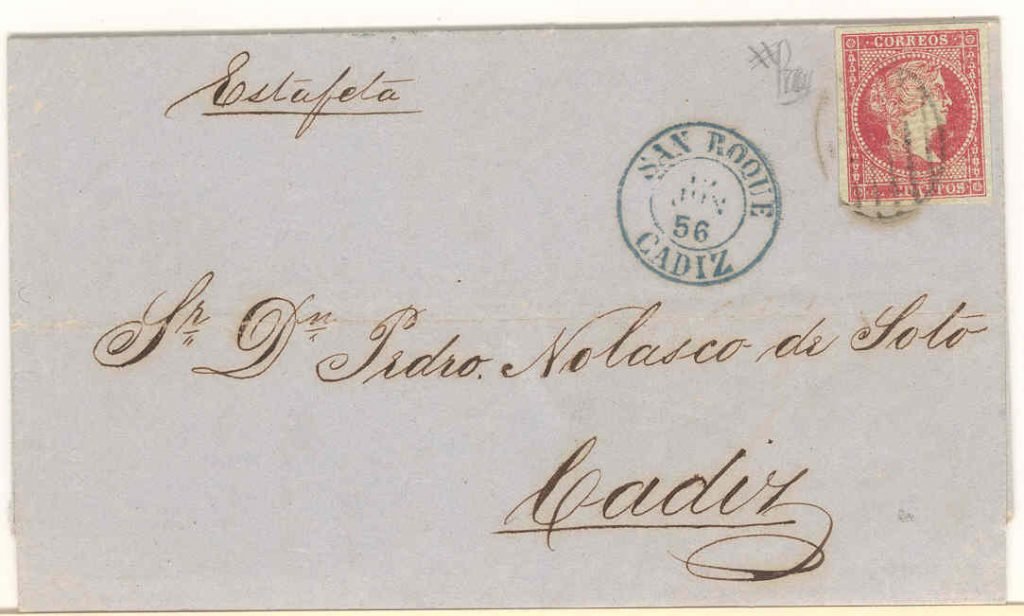 Estafeta
CORREOS
SAN ROQUE
JUN
56
CADIZ
Sr. Dn. Pedro. Nolasco de Soto
Cadiz